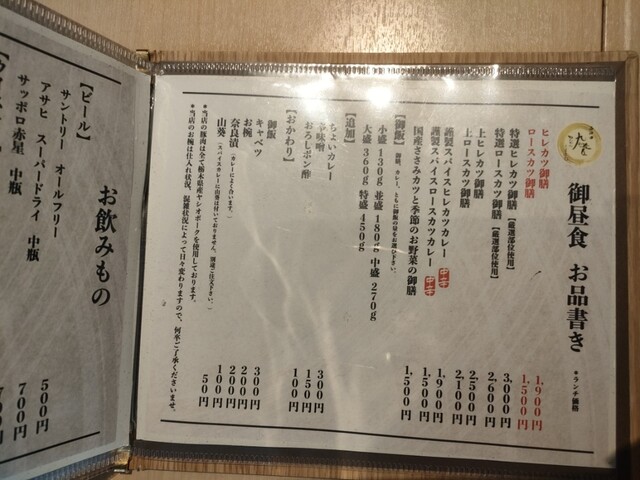 御昼食 お品書き
*ランチ価格
ヒレカツ御膳 1,900円
ロースカツ御膳 1,500円
特選ヒレカツ御膳【厳選部位使用】 3,000円
特選ロースカツ御膳【厳選部位使用】 2,600円
上ヒレカツ御膳 2,500円
上ロースカツ御膳 2,100円
謹製スパイスヒレカツカレー 1,900円
謹製スパイスロースカツカレー 1,500円
国産ささみカツと季節のお野菜の御膳 1,500円
【御飯】 御飯、カレー、ともに御飯の量をお選び下さい。
小盛 130g 並盛 180g 中盛 270g
大盛 360g 特盛 450g
【追加】
ちょいカレー 300円
辛味噌 150円
おろしポン酢 100円
【おかわり】
御飯 300円
キャベツ 200円
お椀 200円
奈良漬 (カレーによく合います。) 100円
山葵 (スパイスカレーに山葵は付いておりません。別途ご注文下さい。) 50円
*当店の豚肉は全て栃木県産ヤシオポークを使用しております。
*当店のお椀は仕入れ状況、混雑状況によって日々変わりますので、何卒ご了承くださいませ。
お飲みもの
【ビール】
サントリー オールフリー 500円
アサヒ スーパードライ 中瓶 700円
サッポロ赤星 中瓶